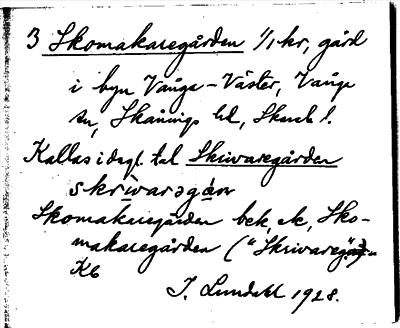 3 Skomakaregården 1/1 kr, gård
i byn Vånga-Väster, Vånga
sn, Skånings hd, Skarab l.
Kallas i dagl. tal Skrivaregården
skrìvarəgán
Skomakaregården bek, ek, Sko-
makaregården ("Skrivaregån"
K6
I. Lundahl 1928.